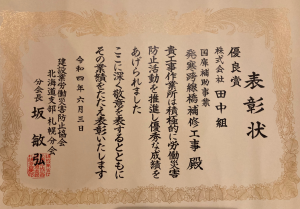 表彰状
優良賞
株式会社 田中組
国庫補助事業
発寒跨線橋補修工事 殿
貴工事作業所は積極的に労働災害
防止活動を推進し優秀な成績を
あげられました
ここに深く敬意を表するとともに
その業績をたたえ表彰いたします
令和四年六月三日
建設業労働災害防止協会
北海道支部 札幌分会
分会長 坂 敏弘